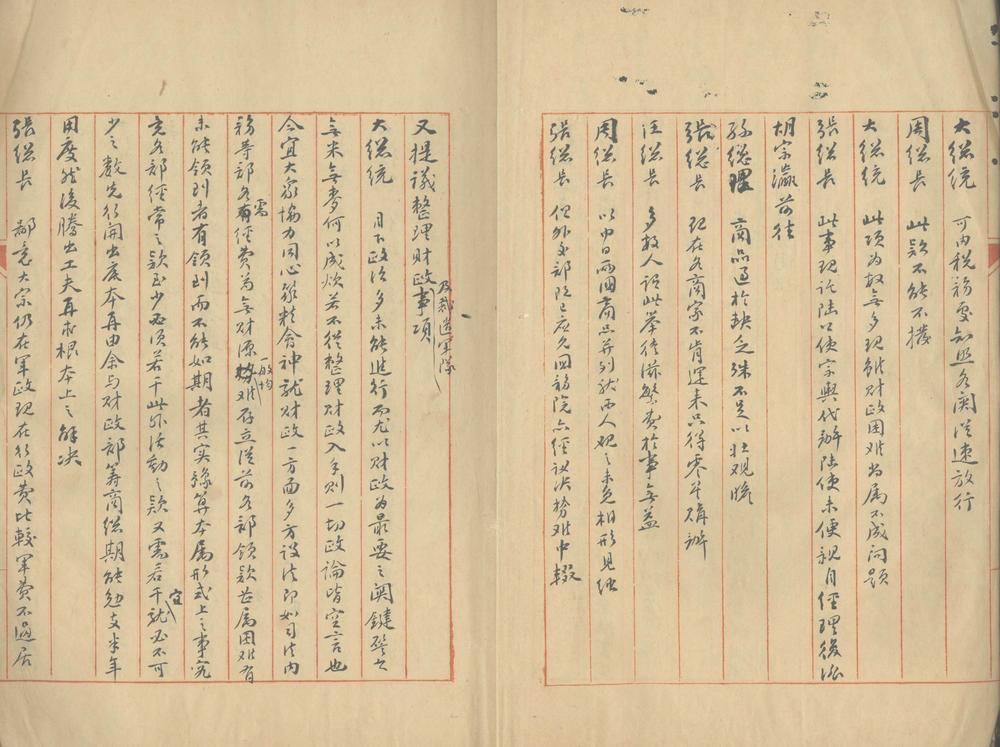 大總統　可由稅務處知照各關從速放行
周總長　此款不能不撥
大總統　此項為數無多現雖財政困難當屬不成問題
張總長　此事現論陸公使宗輿代辦陸使未便親自經理後派
胡宗瀛前往
孫總理　商品過於缺乏殊不足以壯觀瞻
張總長　現在各商家不肯運來只得零星購辦
汪總長　多數人謂此舉徒滋繁費於事無益
周總長　以中日兩國商品并列就西人觀之未免相形見絀
張總長　但外交部既已應允國務院亦經議決撥難中輟
又提議整理財政及裁遣軍隊事項
大總統　目下政治多未能進行而尤以財政為最要之關鍵譬之
無米無麥何以成炊若不從整理財政入手則一切政論皆空言也
今宜大家協力同心聚精會神就財政一方面多方設法即如司法內
務等部各有需經費為無財源一般均難存立從前各部領款已屬困難有
未能領到者有領到而不能如期者其實預算亦屬形式上之事究
竟各部經常之款至少必須若干此外活動之款又需若干就必不可
少之數先行開出底本再由余與財政部籌商總期能勉支半年
用度然後騰出工夫再求根本上之解決
張總長　鄙意大宗仍在軍政現在行政費比較軍費不過居